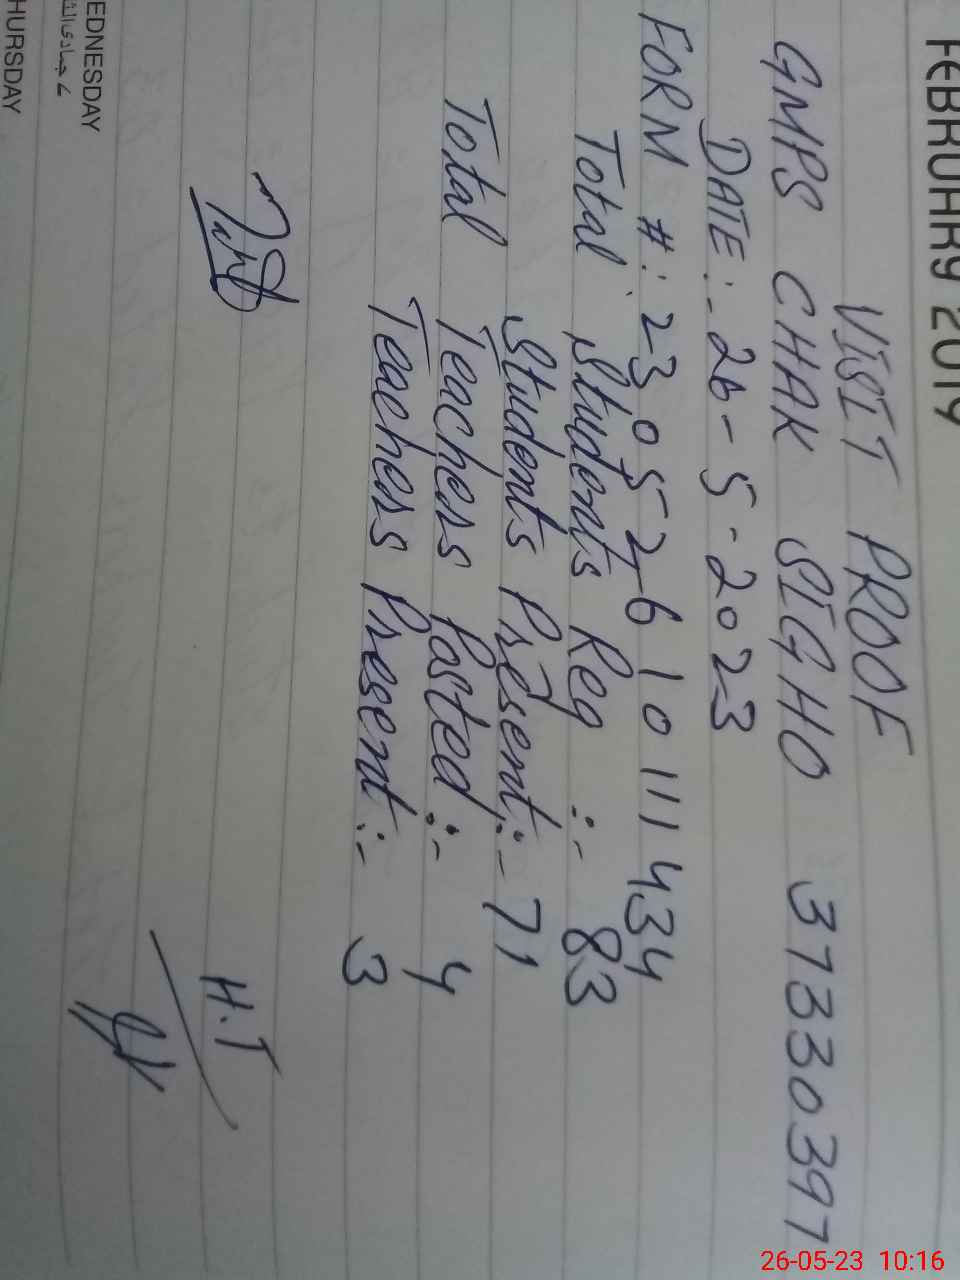 FEBRUARY 2019
VISIT PROOF
GMPS CHAK SIGHO 37330397
DATE:- 26-5-2023
FORM #: 23052610111434
Total Students Reg :- 83
Students Present:- 71
Total Teachers Posted:- 4
Teachers Present:- 3
H.T
EDNESDAY
HURSDAY
26-05-23 10:16